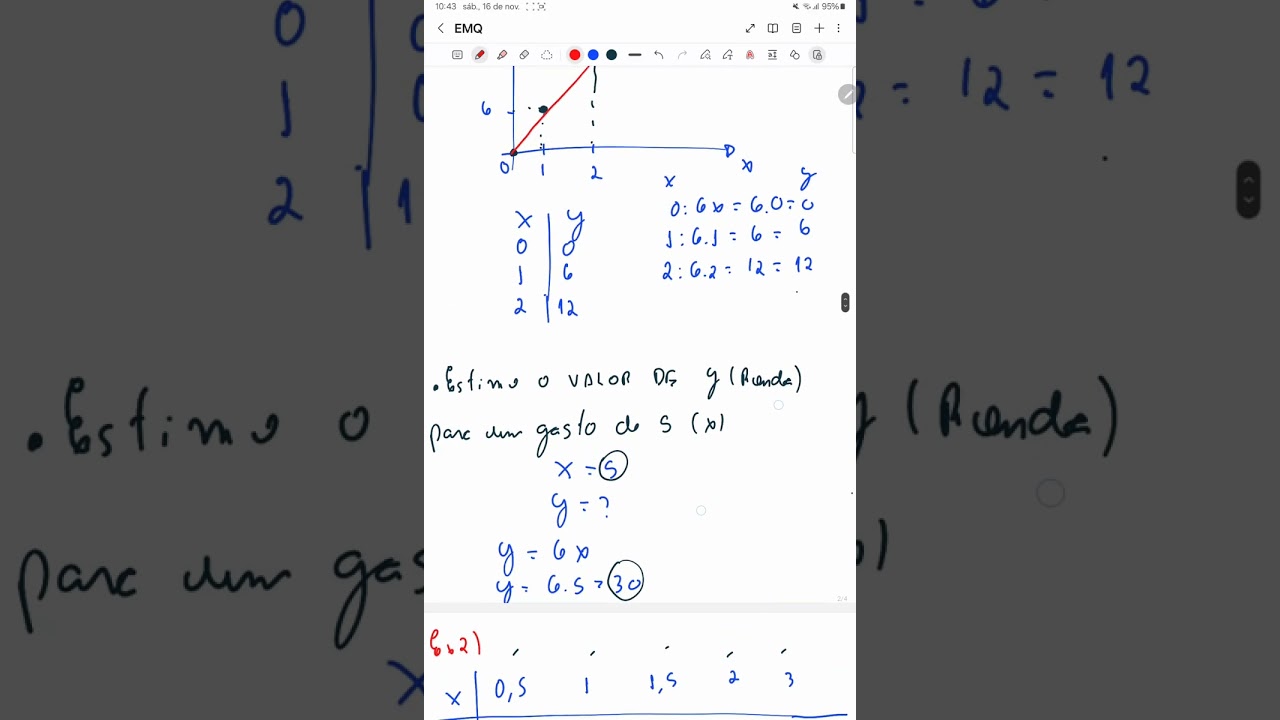 10:43 sáb., 16 de nov. 95%
EMQ
6
0 1 2 x
x y
0 : 6x = 6.0 = 0
1 : 6.1 = 6 = 6
2 : 6.2 = 12 = 12
x y
0 0
1 6
2 12
. Estimo o VALOR DE y (Renda)
para um gasto de 5 (x)
x = 5
y = ?
y = 6x
y = 6.5 = 30
2/4
Ex2)
x 0,5 1 1,5 2 3